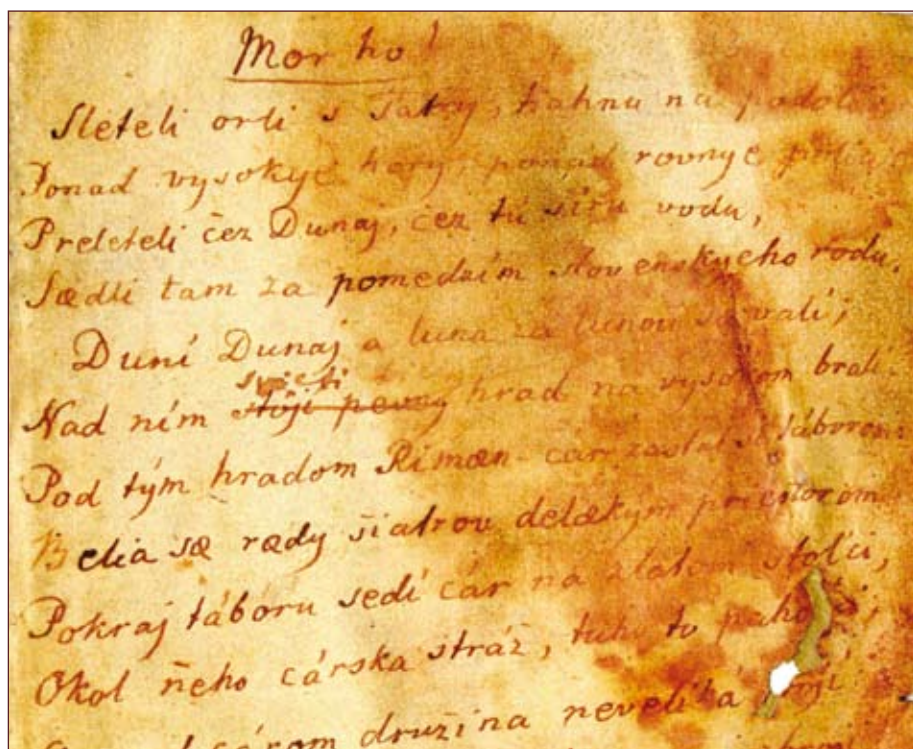 Mor ho!
Sleteli orli s Tatry, tiahnu na podolia
Ponad vysokyé hory, ponad rovnyé polia;
Preleteli čez Dunaj, čez tú šíru vodu,
Sædli tam za pomedzím slovenskyeho rodu.
Duní Dunaj a luna za lunou sa valí;
svieti
Nad ním stojí pevný hrad na vysokom bralí.
Pod tým hradom Rimæn-cár zastal si táborom:
Belia sæ rædy šiatrov delækým priestorom.
Pokraj táboru sedí cár na zlatom stolci,
Okol ňeho cárska stráž, tuhí to
cárom družina neveliká stojí